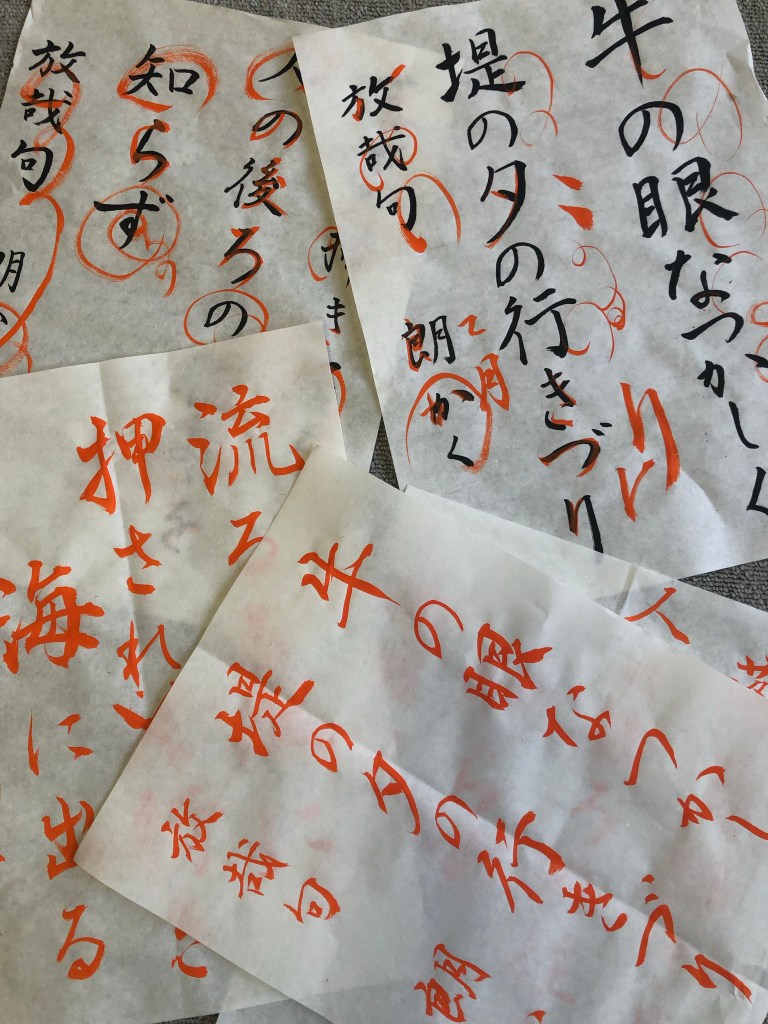 牛の眼なつかしく
堤の夕の行きづり
放哉句
朗かく
月
り
人の後ろの
知らず
放哉句
流
押され
海に出る
牛の眼なつかし
堤の夕の行きづり
放哉句
朗
人